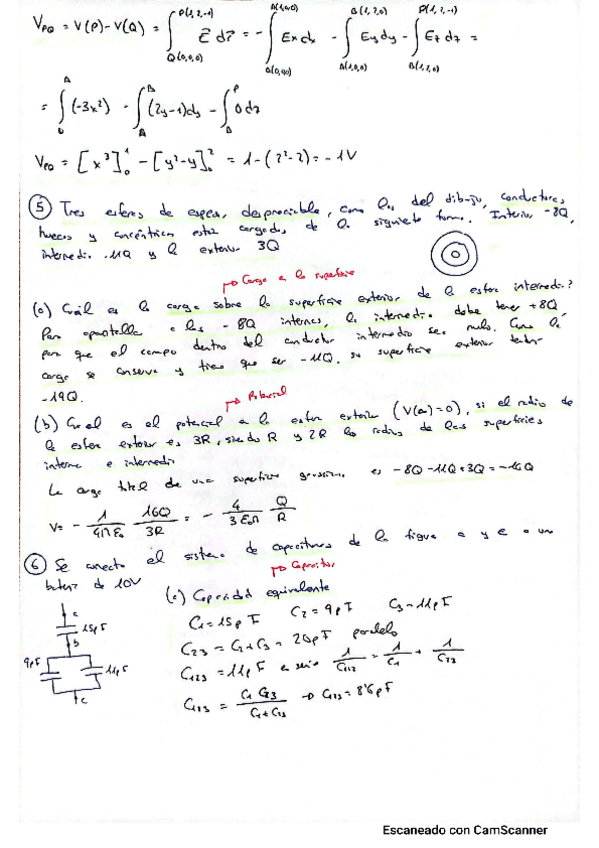 V_PQ = V(P) - V(Q) = ∫_{Q(0,0,0)}^{P(1,2,-1)} E⃗ dr⃗ = - ∫_{O(0,0,0)}^{A(1,0,0)} Ex dx - ∫_{A(1,0,0)}^{B(1,2,0)} Ey dy - ∫_{B(1,2,0)}^{P(1,2,-1)} Ez dz =
= ∫_0^A (-3x²) - ∫_A^B (2y-1)dy - ∫_B^P 0dz
V_PQ = [x³]_0^1 - [y²-y]_0^2 = 1 - (2²-2) = -1V
5 Tres esferas de espesor despreciable, como las del dibujo, conductoras
huecas y concéntricas están cargadas de la siguiente forma. Interior -8Q,
intermedia -11Q y la exterior 3Q
→ Carga a la superficie
(a) Cuál es la carga sobre la superficie exterior de la esfera intermedia?
Para apantallar a las -8Q internas, la intermedia debe tener +8Q
para que el campo dentro del conductor intermedio sea nulo. Como la
carga se conserva y tiene que ser -11Q, su superficie exterior tendrá
-19Q.
→ Potencial
(b) Cuál es el potencial a la esfera exterior (V(∞)=0), si el radio de
la esfera exterior es 3R, siendo R y 2R los radios de las superficies
interna e intermedia
La carga total de una superficie gaussiana es -8Q-11Q+3Q = -16Q
V = - 1/4πε₀ 16Q/3R = - 4/3ε₀π Q/R
6 Se conecta el sistema de capacitores de la figura a y c a una
→ Capacitor
batería de 10V
(a) Capacidad equivalente
C1 = 15pF C2 = 9pF C3 = 11pF
C23 = C2+C3 = 20pF paralelo
C123 = 11pF en serie 1/C123 = 1/C1 + 1/C23
C123 = C1 C23/C1+C23 → C123 = 8'6pF
c
15pF
b
9pF
11pF
c
Escaneado con CamScanner